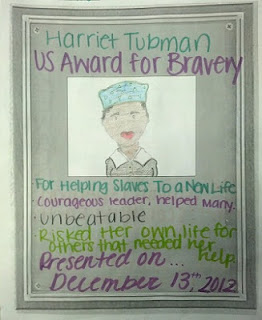 Harriet Tubman
US Award for Bravery
For Helping Slaves To a New Life
· Courageous leader, helped Many.
· Unbeatable
Risked Her own life for
others that needed her
help.
Presented on...
December 13th, 2012